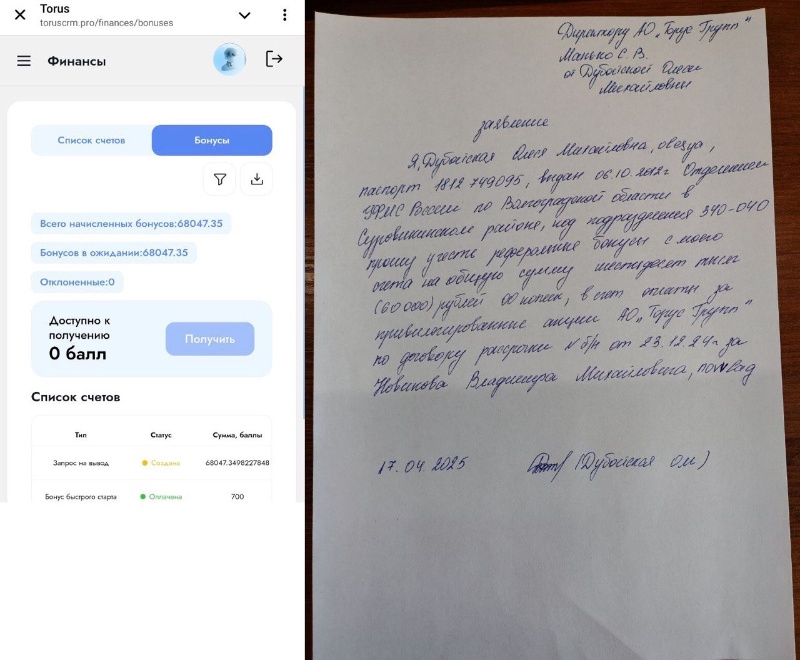 Torus
toruscrm.pro/finances/bonuses
Финансы
Список счетов
Бонусы
Всего начисленных бонусов:68047.35
Бонусов в ожидании:68047.35
Отклоненные:0
Доступно к
получению
0 балл
Получить
Список счетов
Тип Статус Сумма, баллы
Запрос на вывод Создана 68047.3498227848
Бонус быстрого старта Оплачена 700
Директору АО „Торус Групп"
Манько С. В.
от Дубойской Олеси
Михайловны
заявление
Я, Дубойская Олеся Михайловна,
паспорт 1812 749095, выдан 06.10.2012г Отделением
УФМС России по Волгоградской области в
Суровикинском районе, код подразделения 340-040
прошу учесть реферальные бонусы с моего
счета на общую сумму шестьдесят тысяч
(60 000) рублей 00 копеек, в счет оплаты за
привилегированные акции АО „Торус Групп"
по договору рассрочки № б/н от 23.12.24г за
Новикова Владимира Михайловича, novvlad
17.04.2025 (Дубойская ОМ)